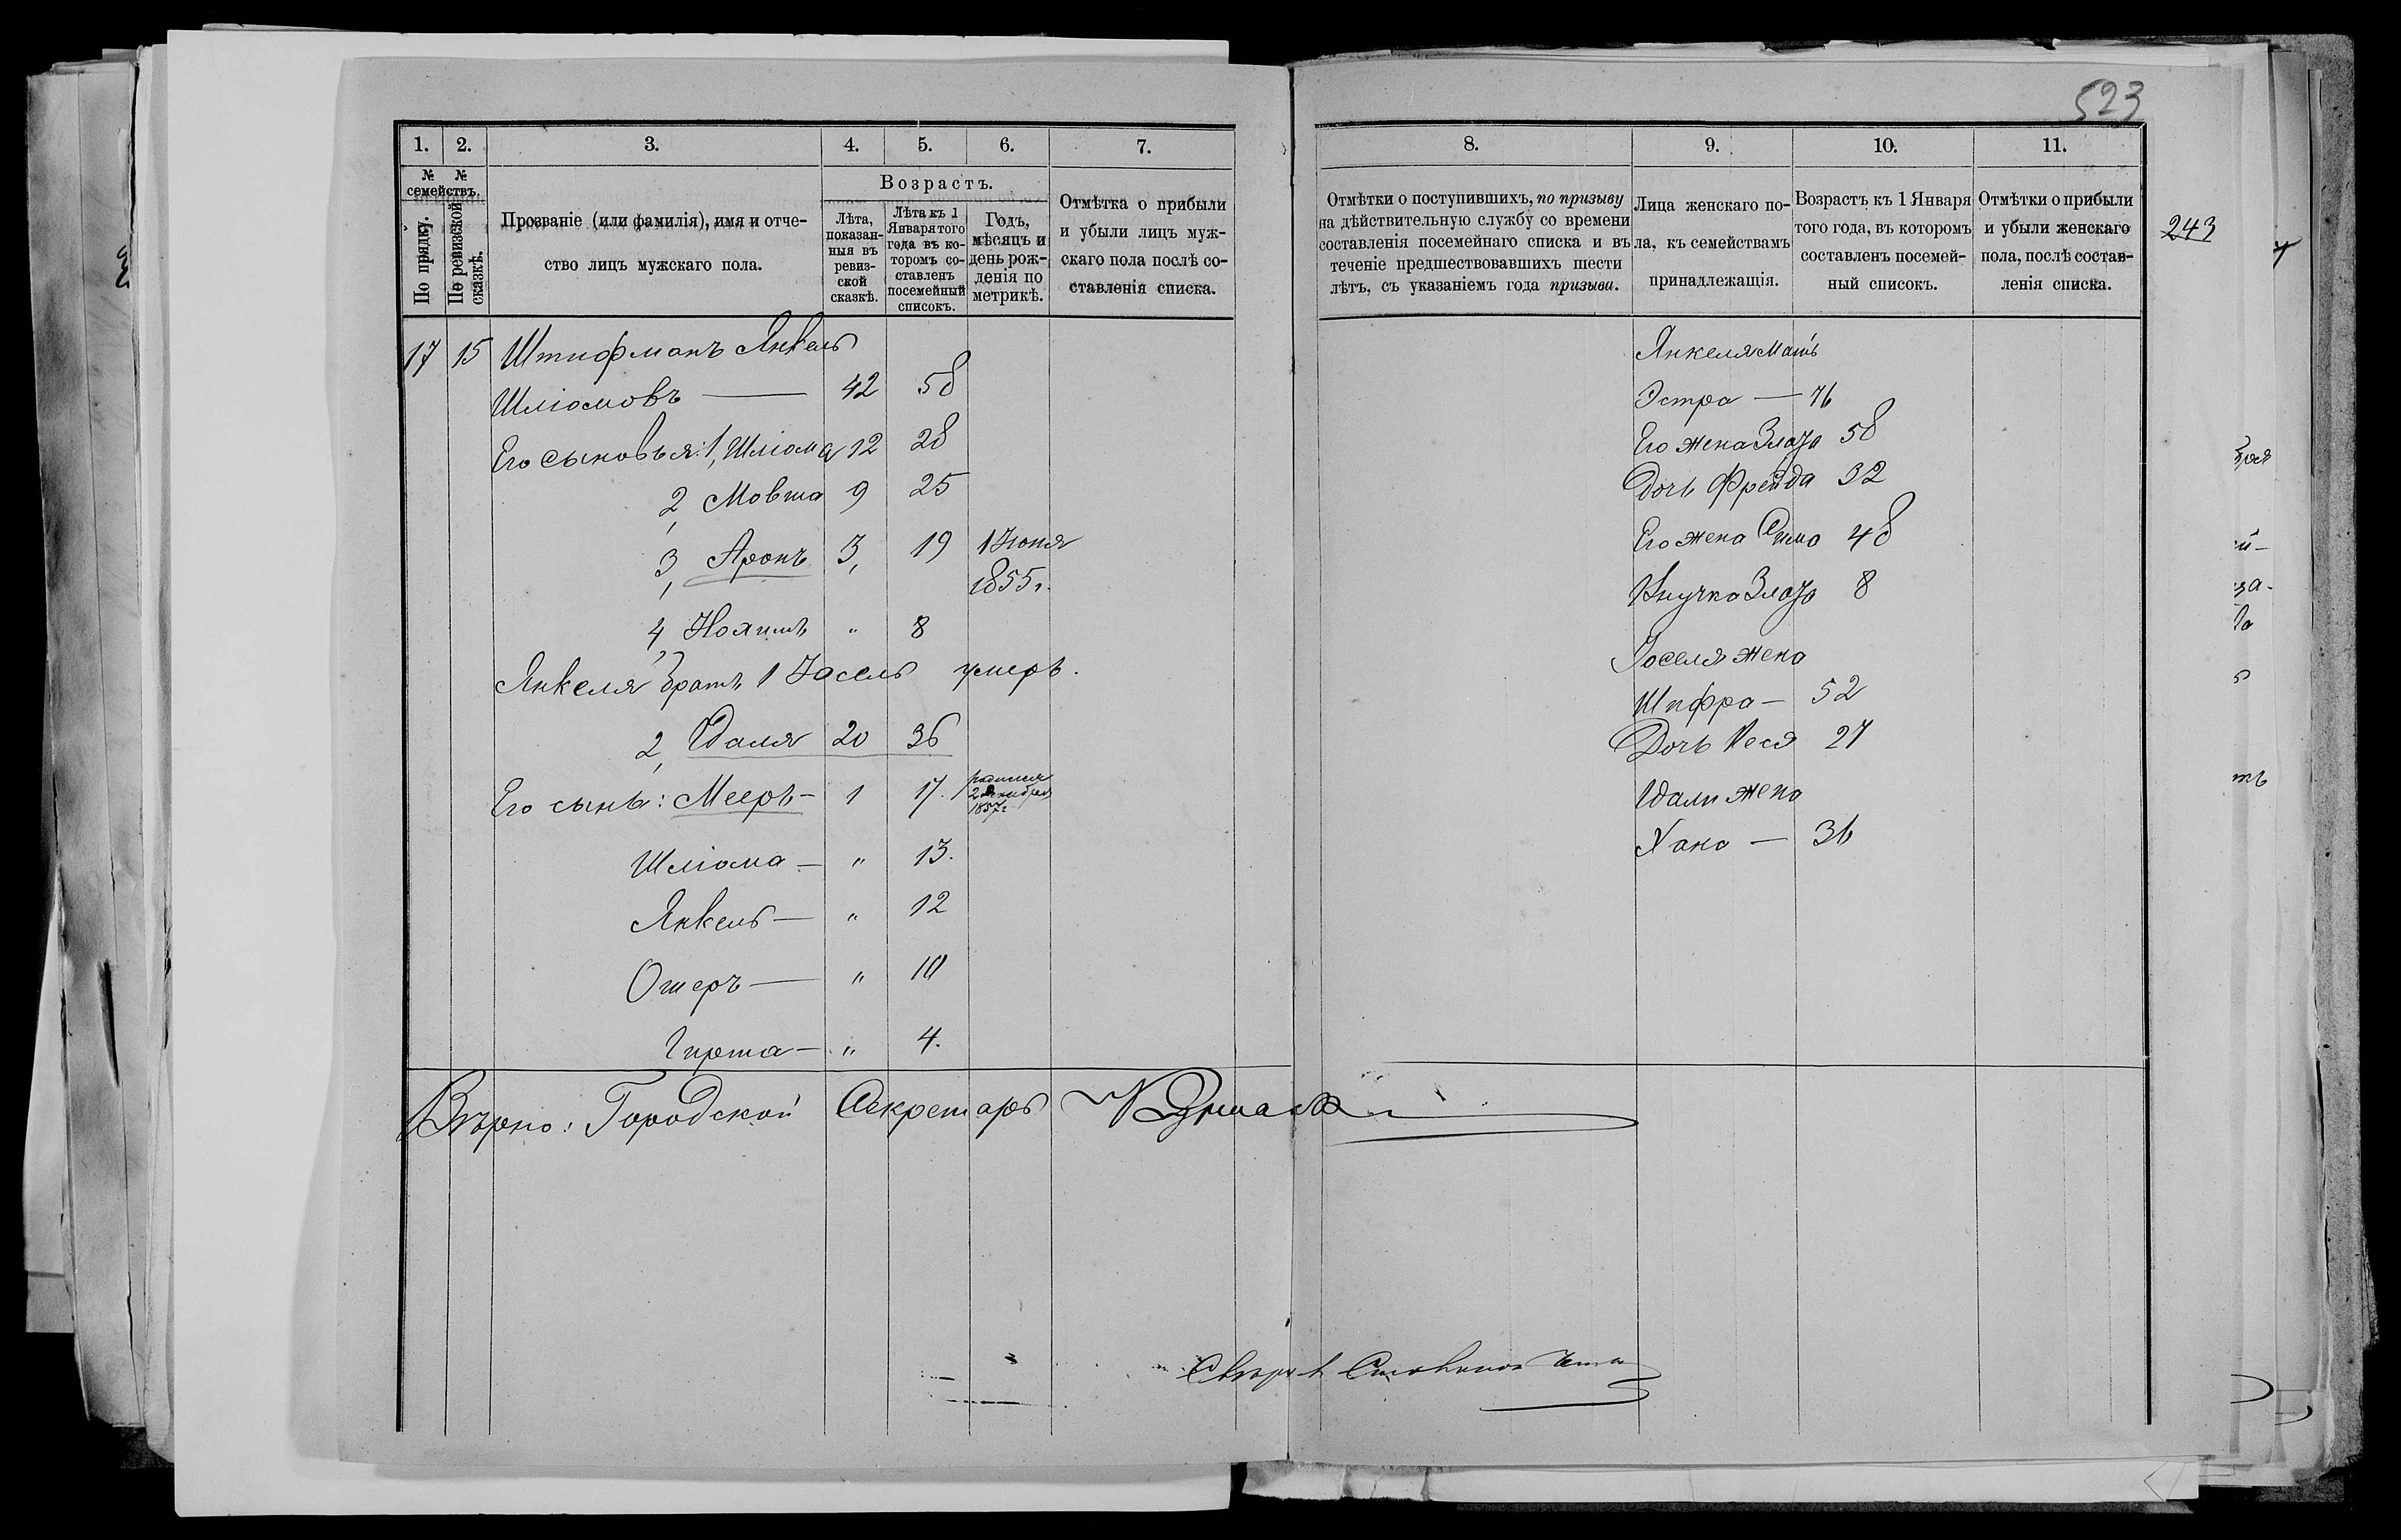 523
243
1. 2. 3. 4. 5. 6. 7.
№ № семействъ.
По прядку.
По ревизской сказкѣ.
Прозваніе (или фамилія), имя и отче-
ство лицъ мужскаго пола.
Возрастъ.
Лѣта,
показан-
ныя въ
ревиз-
ской
сказкѣ.
Лѣта къ 1
Января того
года въ ко-
торомъ со-
ставленъ
посемейный
списокъ.
Годъ,
мѣсяцъ и
день рож-
денія по
метрикѣ.
Отмѣтка о прибыли
и убыли лицъ муж-
скаго пола послѣ со-
ставленія списка.
17 15 Штифманъ Янкель
Шліомовъ — 42 58
Его сыновья: 1, Шліома 12 28
2, Мовша 9 25
3, Аронъ 3, 19 1 Іюня
1855 г.
4, Нохимъ " 8
Янкеля братъ 1 Іосель умеръ.
2, Идаля 20 36
Его сынъ: Мееръ — 1 17. родился
2 декабря
1857 г.
Шліома — " 13.
Янкель — " 12
Ошеръ — " 10
Гирша — " 4.
Вѣрно: Городской Секретарь
8. 9. 10. 11.
Отмѣтки о поступившихъ, по призыву
на дѣйствительную службу со времени
составленія посемейнаго списка и въ
теченіе предшествовавшихъ шести
лѣтъ, съ указаніемъ года призыва.
Лица женскаго по-
ла, къ семействамъ
принадлежащія.
Возрастъ къ 1 Января
того года, въ которомъ
составленъ посемей-
ный списокъ.
Отмѣтки о прибыли
и убыли женскаго
пола, послѣ состав-
ленія списка.
Янкеля мать
Эстра — 76
Его жена Злата 58
Дочь Фрейда 32
Его жена Сима 48
Внучка Злата 8
Іоселя жена
Шифра — 52
Дочь Песя 27
Идали жена
Хана — 36